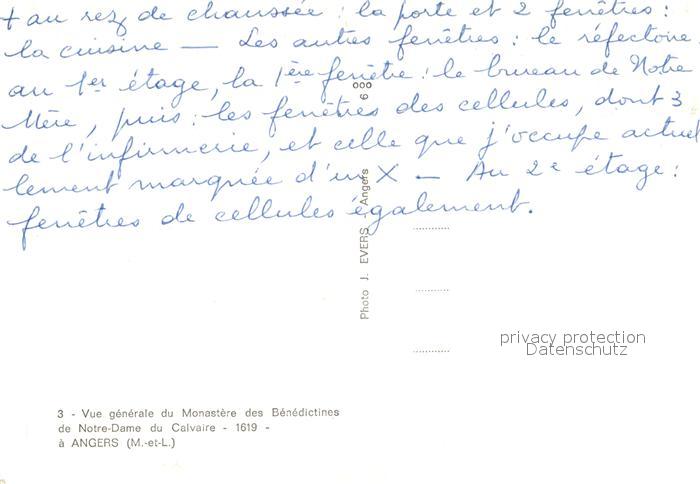 + au rez de chaussée : la porte et 2 fenêtres :
la cuisine — Les autres fenêtres : le réfectoire
au 1er étage, la 1ère fenêtre : le bureau de Notre
Mère, puis : les fenêtres des cellules, dont 3
de l'infirmerie, et celle que j'occupe actuel
lement marquée d'un X — Au 2e étage :
fenêtres de cellules également.
6 000
Photo J. EVERS - Angers
privacy protection
Datenschutz
3 - Vue générale du Monastère des Bénédictines
de Notre-Dame du Calvaire - 1619 -
à ANGERS (M.-et-L.)